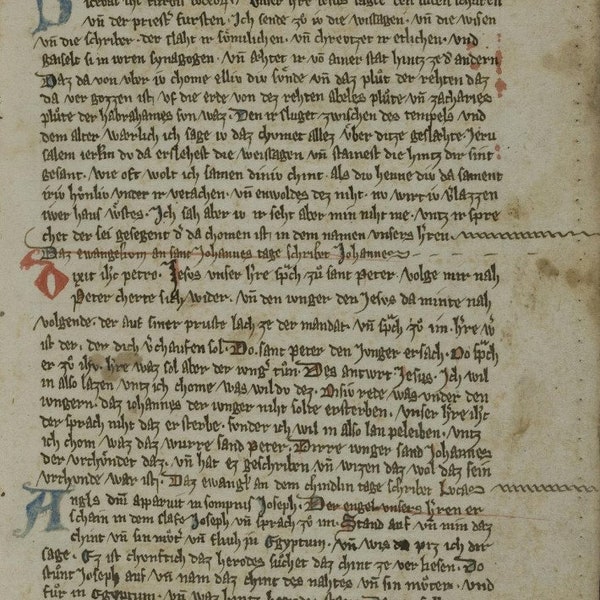 vn̄ der priest fursten. Ich sende zv̊ iv die wissagen. vn̄ die wisen
vn̄ die schriber. der slaht ir sv̊milichen. vn̄ chreutzet ir etlichen. vnd
gaiselt si in iwren synagogen. vn̄ æhtet ir võ ainer stat hintz ze d andern
Daz da von vber iv chome elliv div sv̊nde vn̄ daz plůt der rehten daz
da ver gozzen ist. vf die erde von dez rehten abeles plůte vn̄ zacharies
plůte der habrahames svn waz. Den ir sluget zwischen des tempels vnd
dem alter warlich ich sage iv daz chomet allez vber ditze geslæhte. Jeru
salem ierl'm dv da erslehest die weissagen vn̄ stainest die hintz dir sint
gesant. wie oft wolt ich samen diniv chint. als div henne div da sament
iriv hv̊nliv vnder ir vetachen. vn̄ enwoldes dez niht. nv wirt iv v'lazzen
iwer haus wv̊stes. Ich sah aber iv ir seht aber min niht me. vntz ir spre
chet der sei gesegent d da chomen ist in dem namen vnsers h'ren.
Daz ewangelivm an sant Johannes tage schribet Johannes
Dixit ih̄c petro. Jesus vnser h're sp̄ch zv̊ sant Peter. volge mir nah
Peter cherte sich wider. vn̄ den ivnger den Jesus da minte nah
volgende. der auf siner pruste lach ze der mandat. vn̄ sp̄ch zv̊ im. h're w'
ist der. der dich v'chaufen sol. Do sant Peter den Junger ersach. Do sp̄ch
er zv̊ ih̄v. h're waz sol aber der ivng' tv̊n. Des antwrt Jesus. Ich wil
in also lazen vntz ich chome was wil dv dez. Disiv rede was vnder den
ivngern. daz iohannes der ivnger niht solte ersterben. vnser h're ih̄c
der sprach niht daz er sterbe. sonder ich wil in also lan peleiben. vntz
ich chom waz daz wurre sand Peter. Dirre ivnger sand Johannes
der vrchv̊ndet daz. vn̄ hat ez geschriben vn̄ wizen daz wol daz sein
vrchvnde war ist. Daz ewangl'i an dem chindlin tage schribet Lucas
Angl's dn̄i apparuit in sompnis Joseph. Der engel vnsers h'ren er
schain in dem slafe Joseph vn̄ sprach zv̊ im. Stand auf vn̄ nim daz
chint vn̄ sin mv̊t' vn̄ flivh in Egyptum. vn̄ wis da piz ich dir
sage. Ez ist chvnftich daz herodes sv̊chet daz chint ze ver liesen. Do
stv̊nt Joseph auf vn̄ nam daz chint des nahtes vn̄ sin mv̊ter. vnd
fůr in Egyptum. vn̄ waz hintz herodes